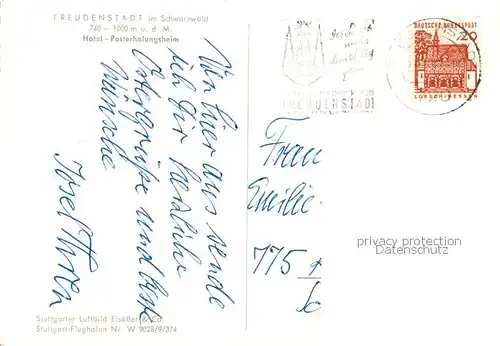 FREUDENSTADT im Schwarzwald
740 - 1000 m u. d. M.
Hotel - Posterholungsheim
Von hier aus sende
ich Dir herzliche
Ostergrüße und beste
Wünsche
Josef
Stuttgarter Luftbild Elsäßer & Co.
Stuttgart-Flughafen Nr. W 9028/9/374
FREUDENSTADT
DEUTSCHE BUNDESPOST
20
LORSCH · HESSEN
Frau
Emilie
775
privacy protection
Datenschutz